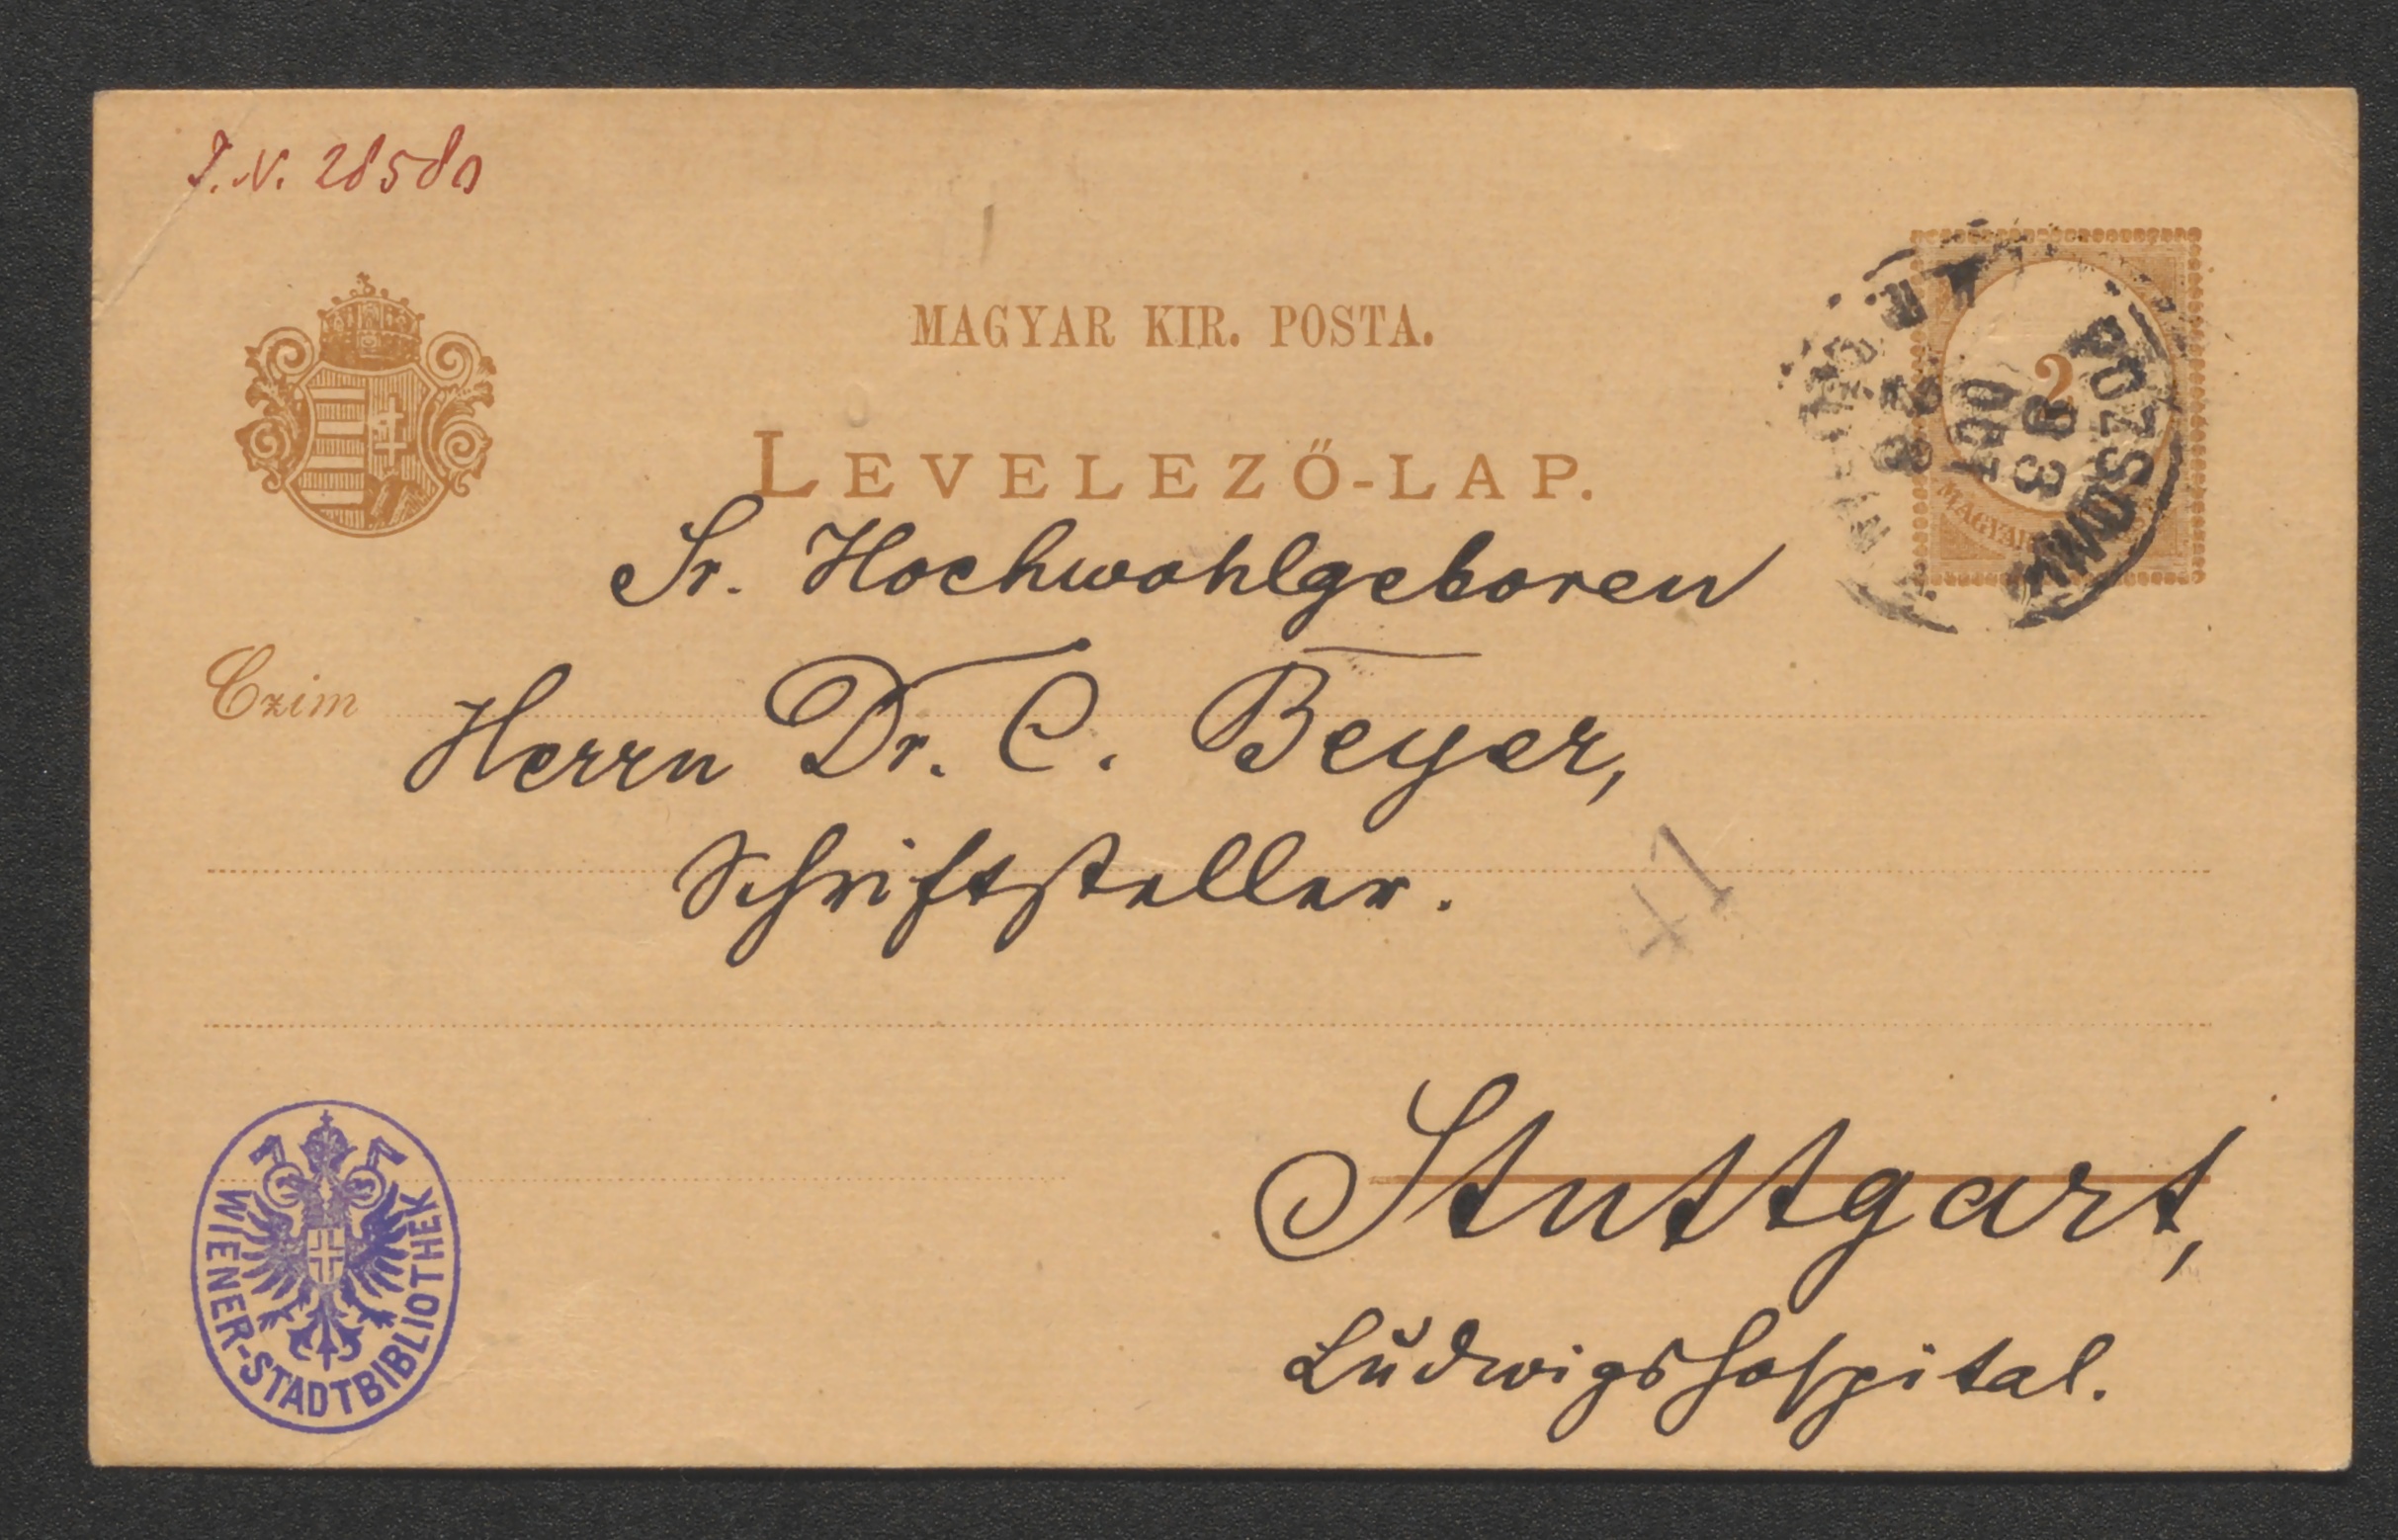 J.N. 28580
MAGYAR KIR. POSTA.
LEVELEZŐ-LAP.
2
MAGYAR
POZSONY
93
OCT
Sr. Hochwohlgeboren
Czim
Herrn Dr. C. Beyer,
Schriftsteller.
47
Stuttgart,
Ludwigshospital.
WIENER-STADTBIBLIOTHEK